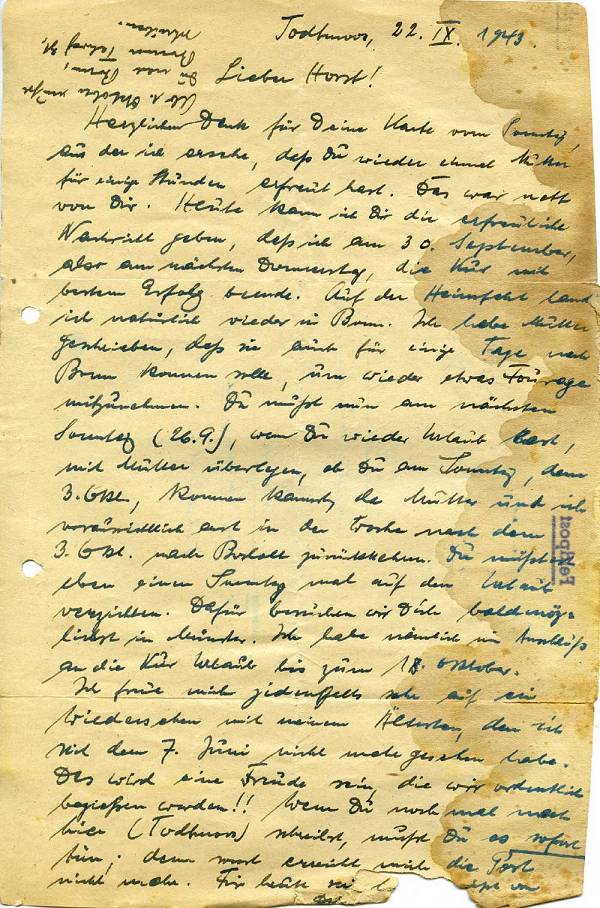 Todtmoos, 22. IX. 1943.
Lieber Horst!
Herzlichen Dank für Deine Karte vom Sonntag,
aus der ich ersehe, daß Du wieder einmal Mutter
für einige Stunden erfreut hast. Das war nett
von Dir. Heute kann ich Dir die erfreuliche
Nachricht geben, daß ich am 30. September,
also am nächsten Donnerstag, die Kur mit
bestem Erfolg beende. Auf der Heimfahrt lande
ich natürlich wieder in Bonn. Ich habe Mutter
geschrieben, daß sie auch für einige Tage nach
Bonn kommen solle, um wieder etwas Fourage
mitzunehmen. Du müßt nun am nächsten
Sonntag (26.9.), wenn Du wieder Urlaub hast,
mit Mutter überlegen, ob Du am Sonntag, dem
3. Okt., kommen kannst, da Mutter und ich
voraussichtlich erst in der Woche nach dem
3. Okt. nach Bocholt zurückkehren. Du müßtest
eben einen Sonntag mal auf den Urlaub
verzichten. Dafür besuchen wir Dich baldmög-
lichst in Münster. Ich habe nämlich im Anschluß
an die Kur Urlaub bis zum 18. Oktober.
Ich freue mich jedenfalls sehr auf ein
Wiedersehen mit meinem Ältesten, den ich
seit dem 7. Juni nicht mehr gesehen habe.
Das wird eine Freude sein, die wir ordentlich
begießen werden!! Wenn Du noch mal nach
hier (Todtmoos) schreibst, mußt Du es sofort
tun; denn sonst erreicht mich die Post
nicht mehr. Für heute sei
Ab 1. Oktober mußt
Du nach Bonn,
schreiben.
Feldpost